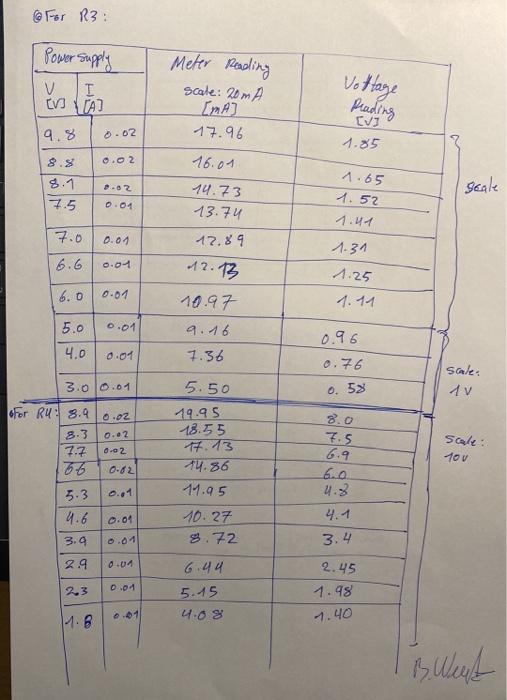 For R3:
Power supply | Meter Reading | Voltage
V [V] | I [A] | scale: 20mA [mA] | Reading [V]
9.8 | 0.02 | 17.96 | 1.85
8.8 | 0.02 | 16.01 | 1.65
8.1 | 0.02 | 14.73 | 1.52
7.5 | 0.01 | 13.74 | 1.41
7.0 | 0.01 | 12.89 | 1.31
6.6 | 0.01 | 12.13 | 1.25
6.0 | 0.01 | 10.97 | 1.11
scale
5.0 | 0.01 | 9.16 | 0.96
4.0 | 0.01 | 7.36 | 0.76
3.0 | 0.01 | 5.50 | 0.58
scale:
1V
For R4: 8.9 | 0.02 | 19.95 | 8.0
8.3 | 0.02 | 18.55 | 7.5
7.7 | 0.02 | 17.13 | 6.9
6.6 | 0.02 | 14.86 | 6.0
5.3 | 0.01 | 11.95 | 4.8
4.6 | 0.01 | 10.27 | 4.1
3.9 | 0.01 | 8.72 | 3.4
2.9 | 0.01 | 6.44 | 2.45
2.3 | 0.01 | 5.15 | 1.98
1.8 | 0.01 | 4.08 | 1.40
scale:
10V